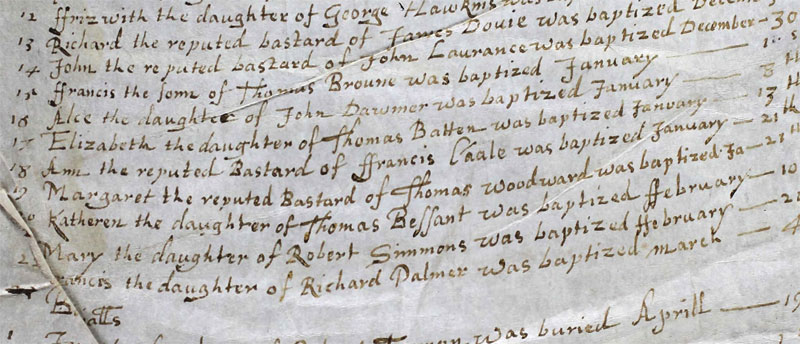 12 ffrizwith the daughter of George Hawkins was
13 Richard the reputed bastard of James Dovie was baptized Decem
14 John the reputed bastard of John Laurance was baptized December - 30
15 ffrancis the sonn of Thomas Broune was baptized January
16 Alce the daughter of John Dawmer was baptized January
17 Elizabeth the daughter of Thomas Batten was baptized January 13 th
18 Ann the reputed Bastard of ffrancis was baptized January - 21 th
Margaret the reputed Bastard of Thomas Woodward was baptized Ja - 21 th
Katheren the daughter of Thomas Bessant was baptized ffebruary - 10
Mary the daughter of Robert Simmons was baptized ffebruary - 2
francis the daughter of Richard Palmer was baptized march - 4
Burialls
1 was buried Aprill 19